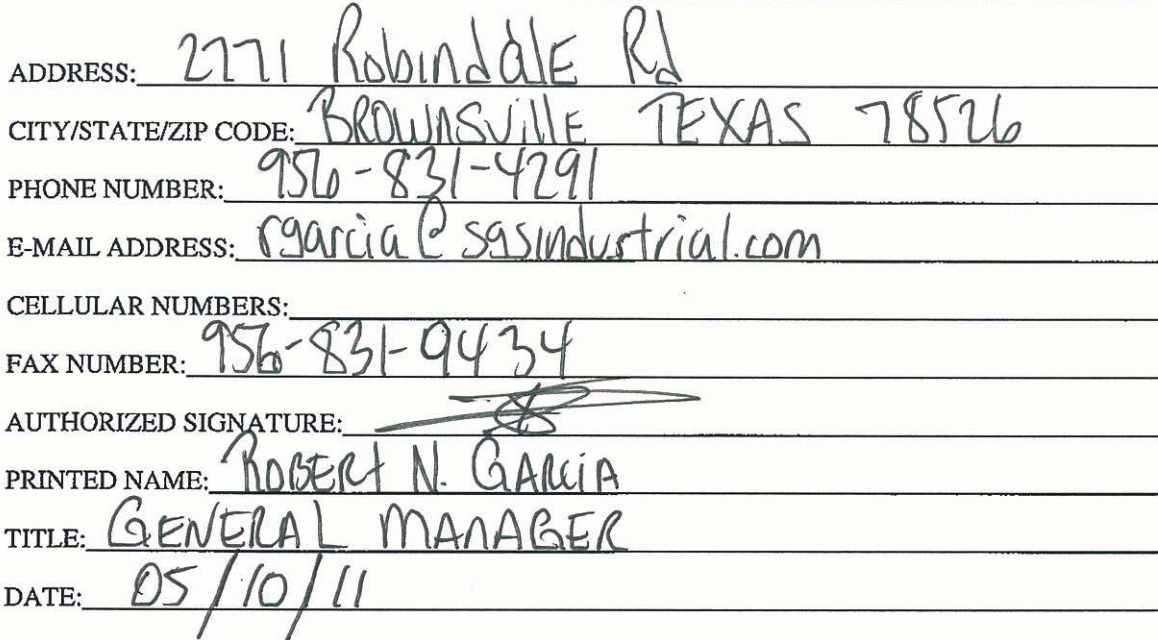 ADDRESS: 2771 Robindale Rd
CITY/STATE/ZIP CODE: BROWNSVILLE TEXAS 78526
PHONE NUMBER: 956-831-4291
E-MAIL ADDRESS: rgarcia@sgsindustrial.com
CELLULAR NUMBERS:
FAX NUMBER: 956-831-9434
AUTHORIZED SIGNATURE:
PRINTED NAME: ROBERt N. GARCiA
TITLE: GENERAL MANAGER
DATE: 05/10/11